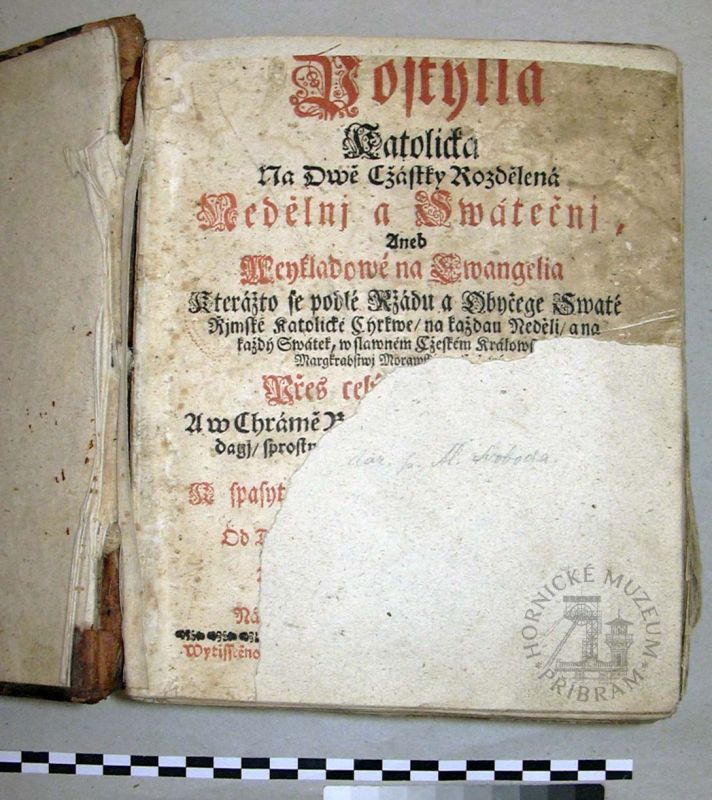 Postylla
Katolická
Na Dwě Cžástky Rozdělená
Nedělnj a Swátečnj,
Aneb
Weykladowé na Ewangelia
Kterážto se podlé Ržádu a Obyčege Swaté
Ržjmské Katolické Cýrkwe/ na každau Neděli/ a na
každý Swátek, w slawném Cžeském Králows
Margkrabstwj Moraws
Přes cel
A w Chrámě
dagj/ sprostn
K spasyt
Od
Ná
Wytisstěno
dar. p. M. Svoboda
HORNICKÉ MUZEUM
PŘÍBRAM